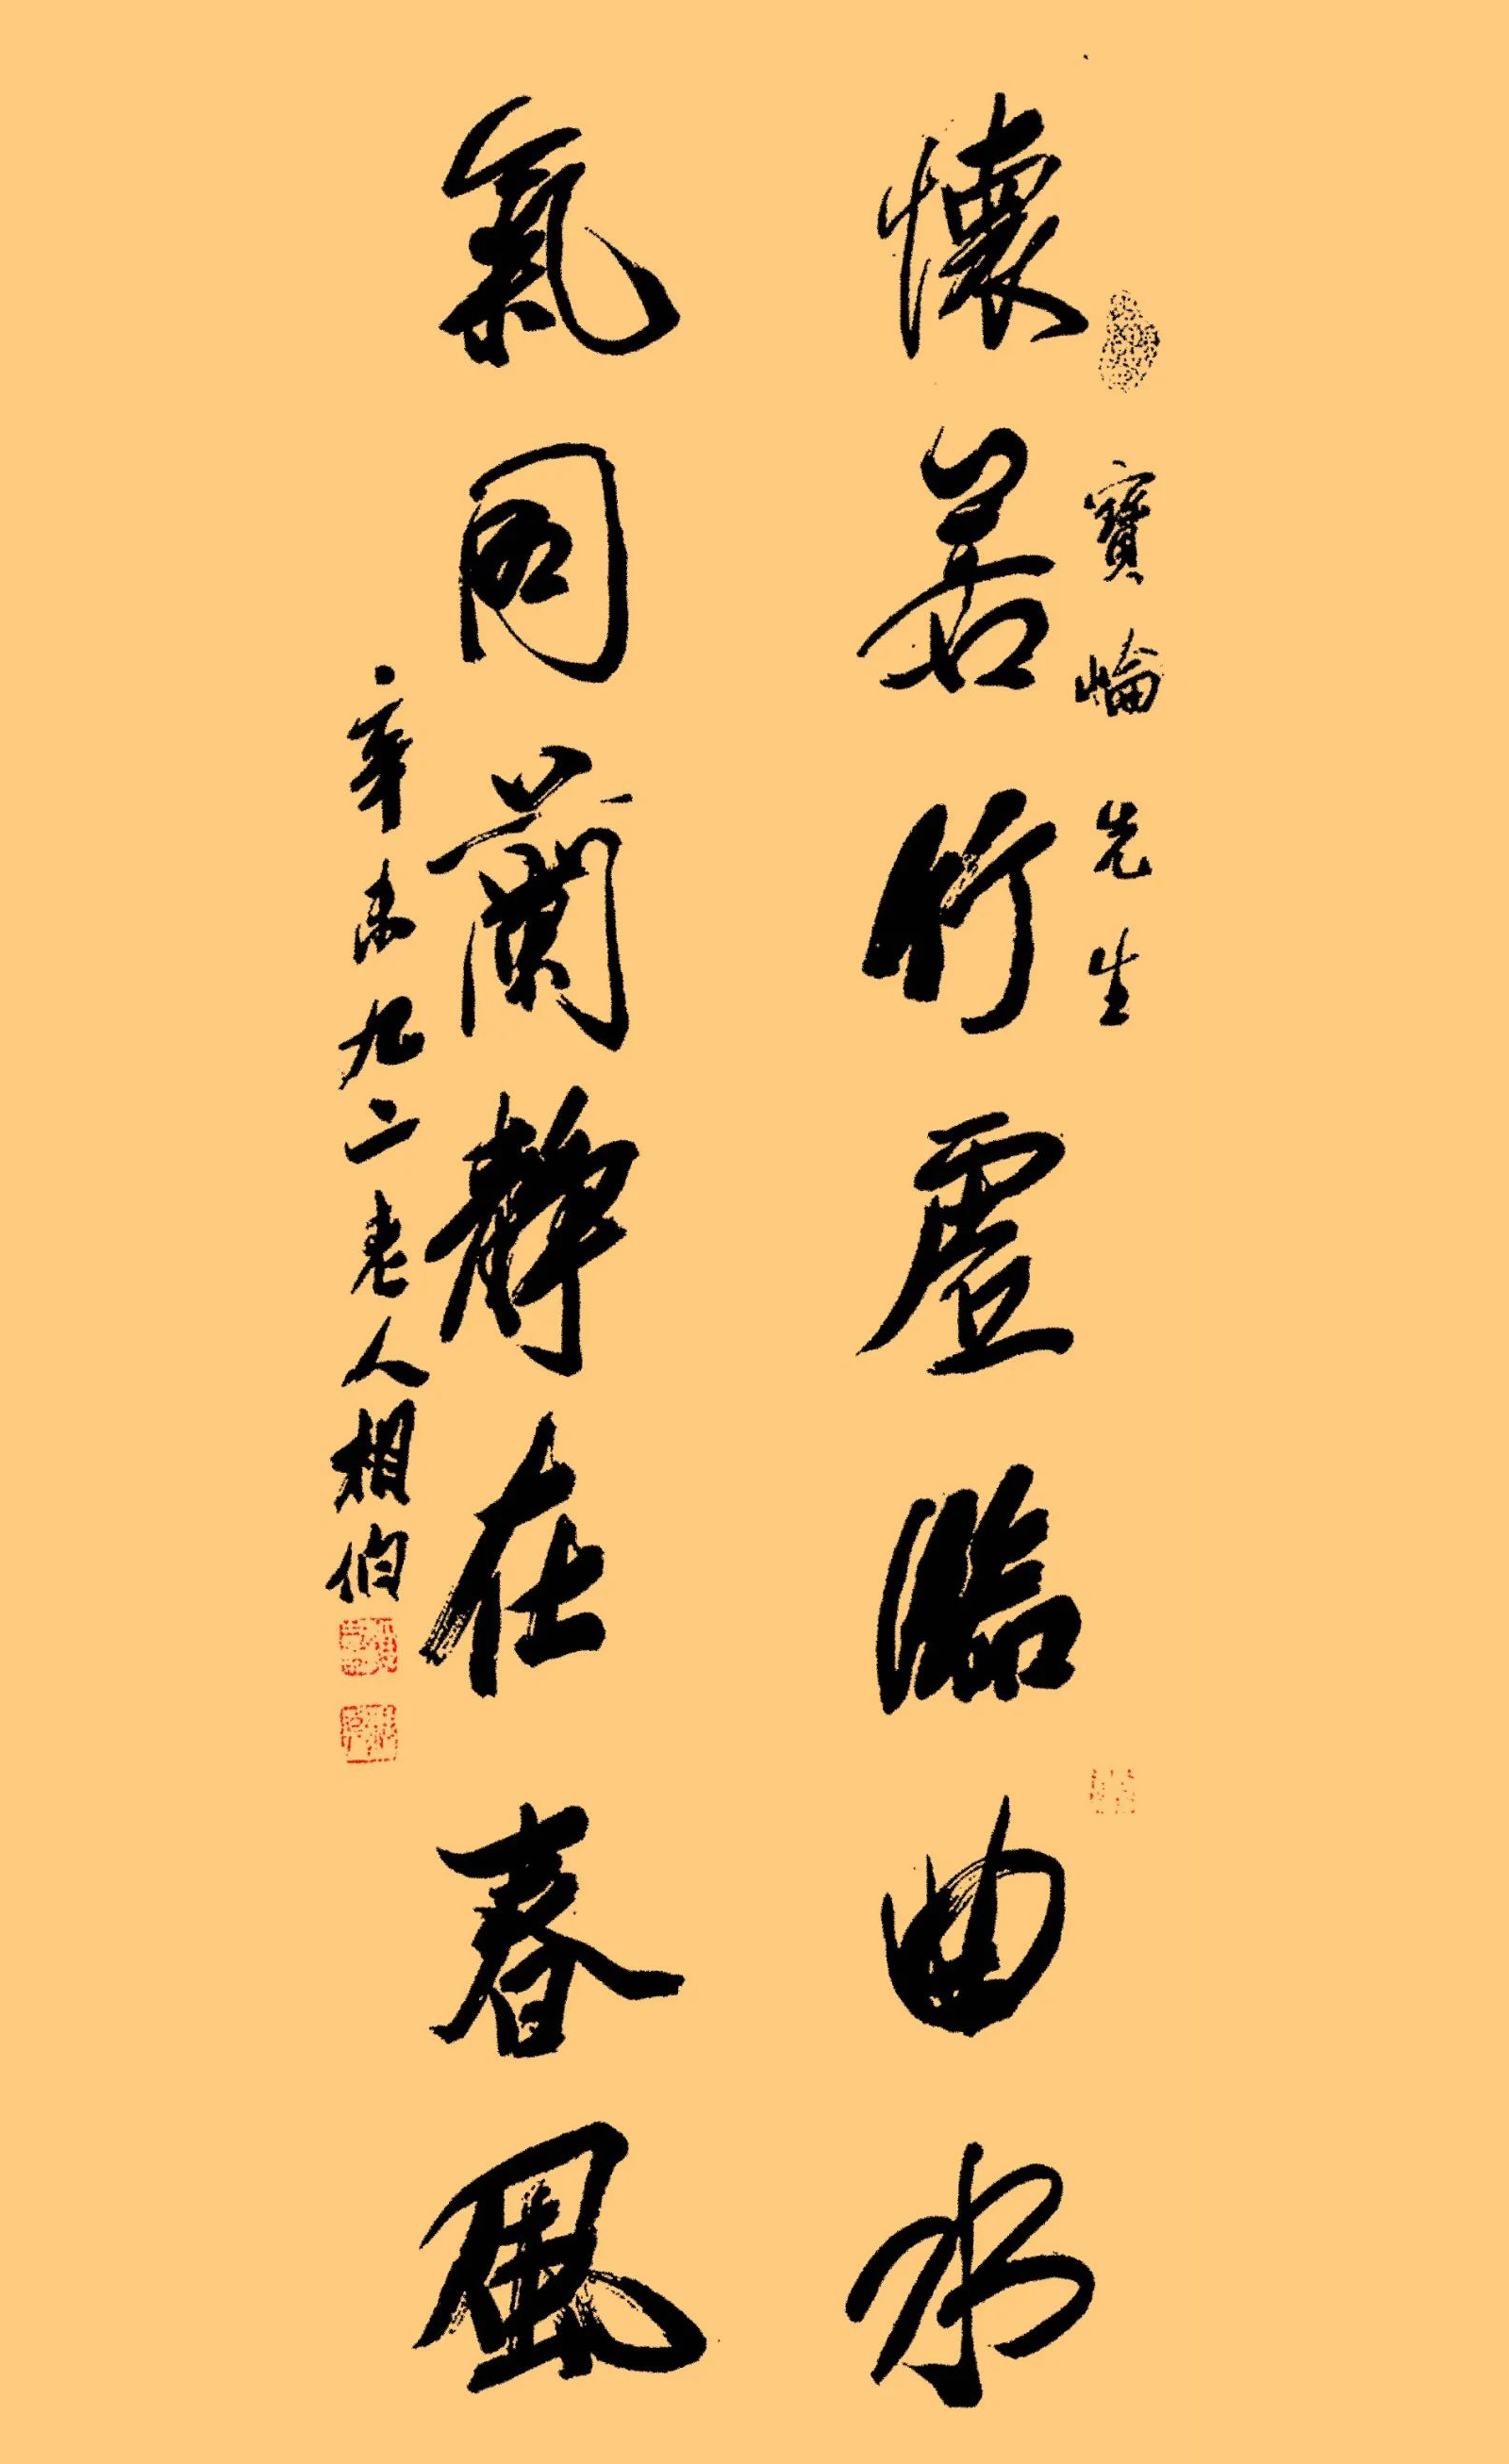 寶崘先生
懷若竹虛臨曲水
氣同蘭靜在春風
辛未九二老人相伯